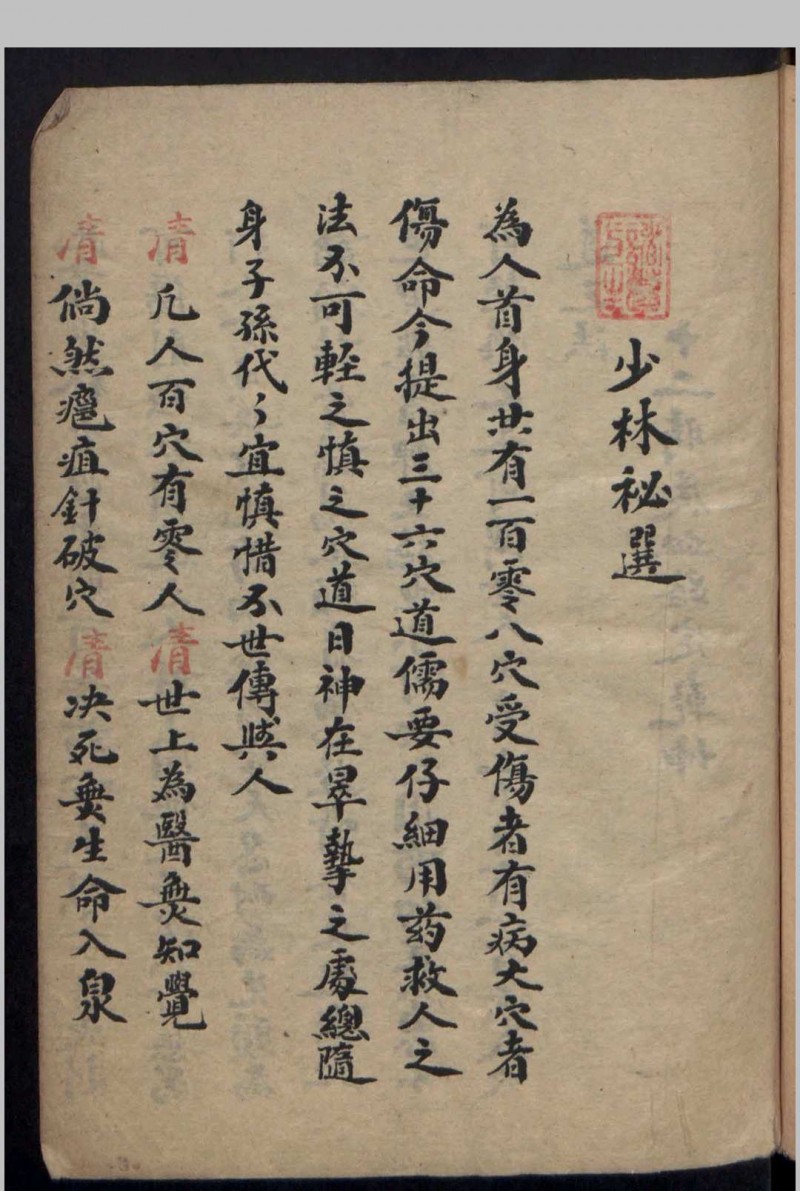 少林祕選
為人首身共有一百零八穴受傷者有病大穴者
傷命今提出三十六穴道儒要仔細用葯救人之
法不可輊之慎之穴道日神在晕摯之處總隨
身子孫代々宜慎惜不世傳與人
清 凢人百穴有零人 清 世上為醫無知覺
清 倘然瘪疽針破穴 清 决死無生命入泉